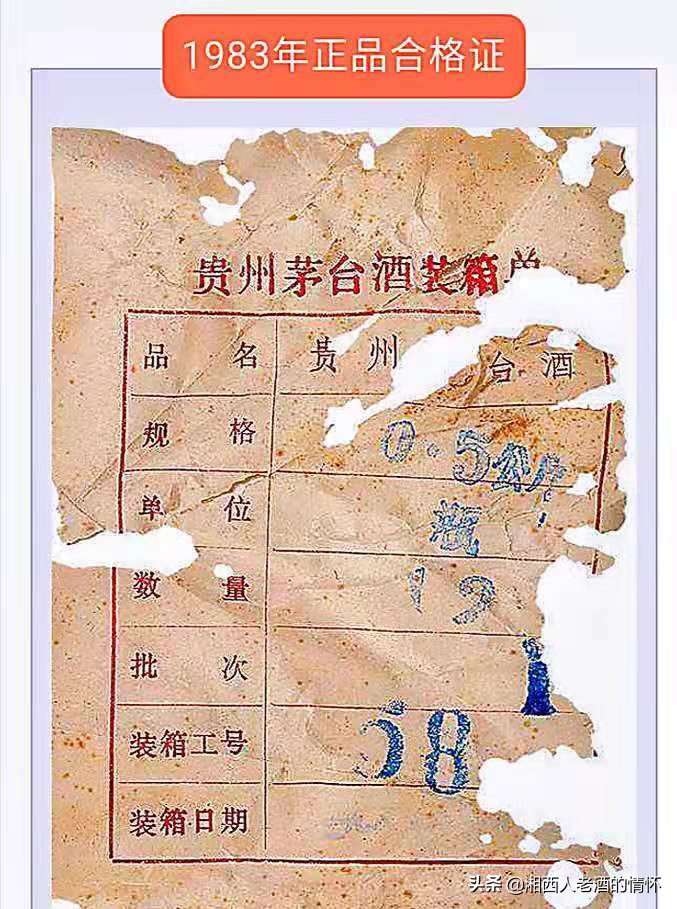 1983年正品合格证
贵州茅台酒装箱单
品名 贵州 台酒
规格 0.5公斤
单位 瓶
数量 12
批次 1
装箱工号 58
装箱日期
头条 @湘西人老酒的情怀